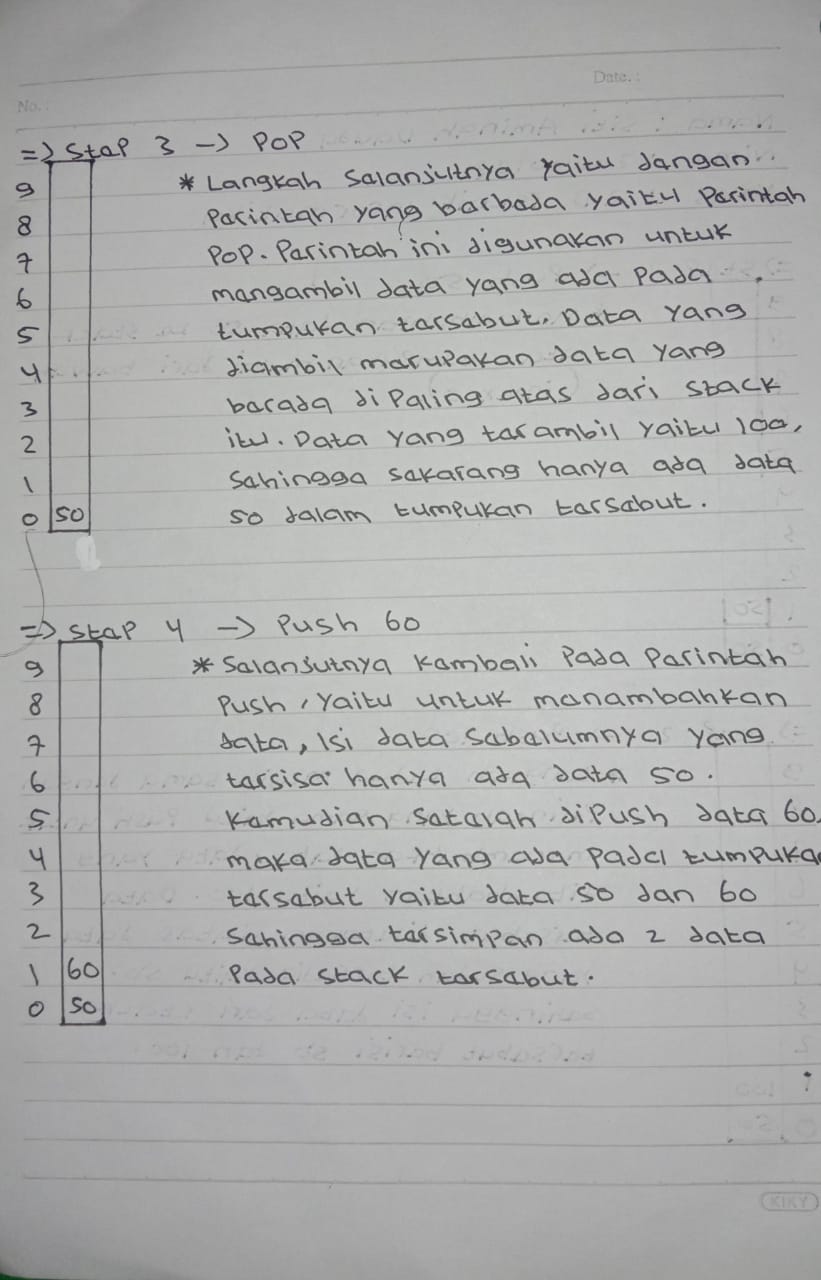 No.:
Date.:
=> Step 3 -> POP
9
* Langkah selanjutnya yaitu dengan
8
perintah yang berbeda yaitu perintah
7
POP. Perintah ini digunakan untuk
6
mengambil data yang ada pada
5
tumpukan tersebut. Data yang
4
diambil merupakan data yang
3
berada di paling atas dari stack
2
itu. Data yang terambil yaitu 100,
1
Sehingga sekarang hanya ada data
0 50
50 dalam tumpukan tersebut.
=> Step 4 -> Push 60
9
* Selanjutnya kembali pada perintah
8
Push, yaitu untuk menambahkan
7
data, isi data sebelumnya yang
6
tersisa hanya ada data 50.
5
Kemudian setelah dipush data 60,
4
maka data yang ada pada tumpukan
3
tersebut yaitu data 50 dan 60
2
Sehingga tersimpan ada 2 data
1 60
Pada stack tersebut.
0 50
KIKY